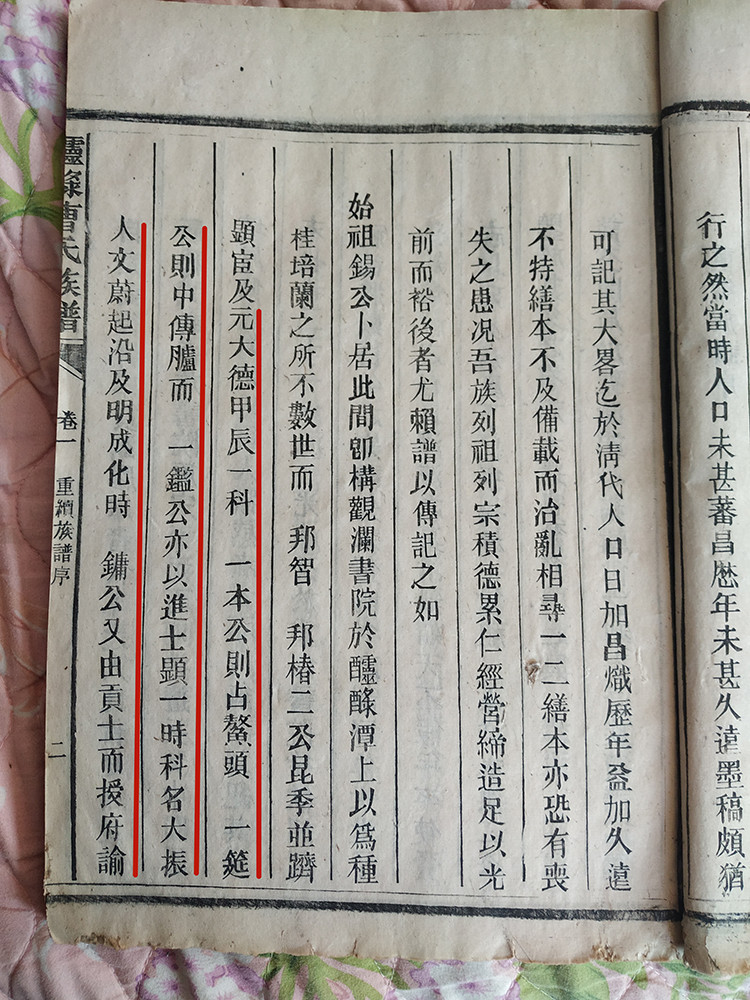 行之然當時人口未甚蕃昌歷年未甚久遠墨稿頗猶
可記其大畧迄於清代人口日加昌熾歷年益加久遠
不特繕本不及備載而治亂相尋一二繕本亦恐有喪
失之患况吾族列祖列宗積德累仁經營締造足以光
前而裕後者尤賴譜以傳記之如
始祖錫公卜居此間卽構觀瀾書院於醽醁潭上以爲種
桂培蘭之所不數世而 邦智 邦椿二公昆季並躋
顯宦及元大德甲辰一科 一本公則占鰲頭 一筵
公則中傳臚而 一鑑公亦以進士顯一時科名大振
人文蔚起沿及明成化時 鏞公又由貢士而授府諭
醽醁曹氏族譜
卷一
重續族譜序
二